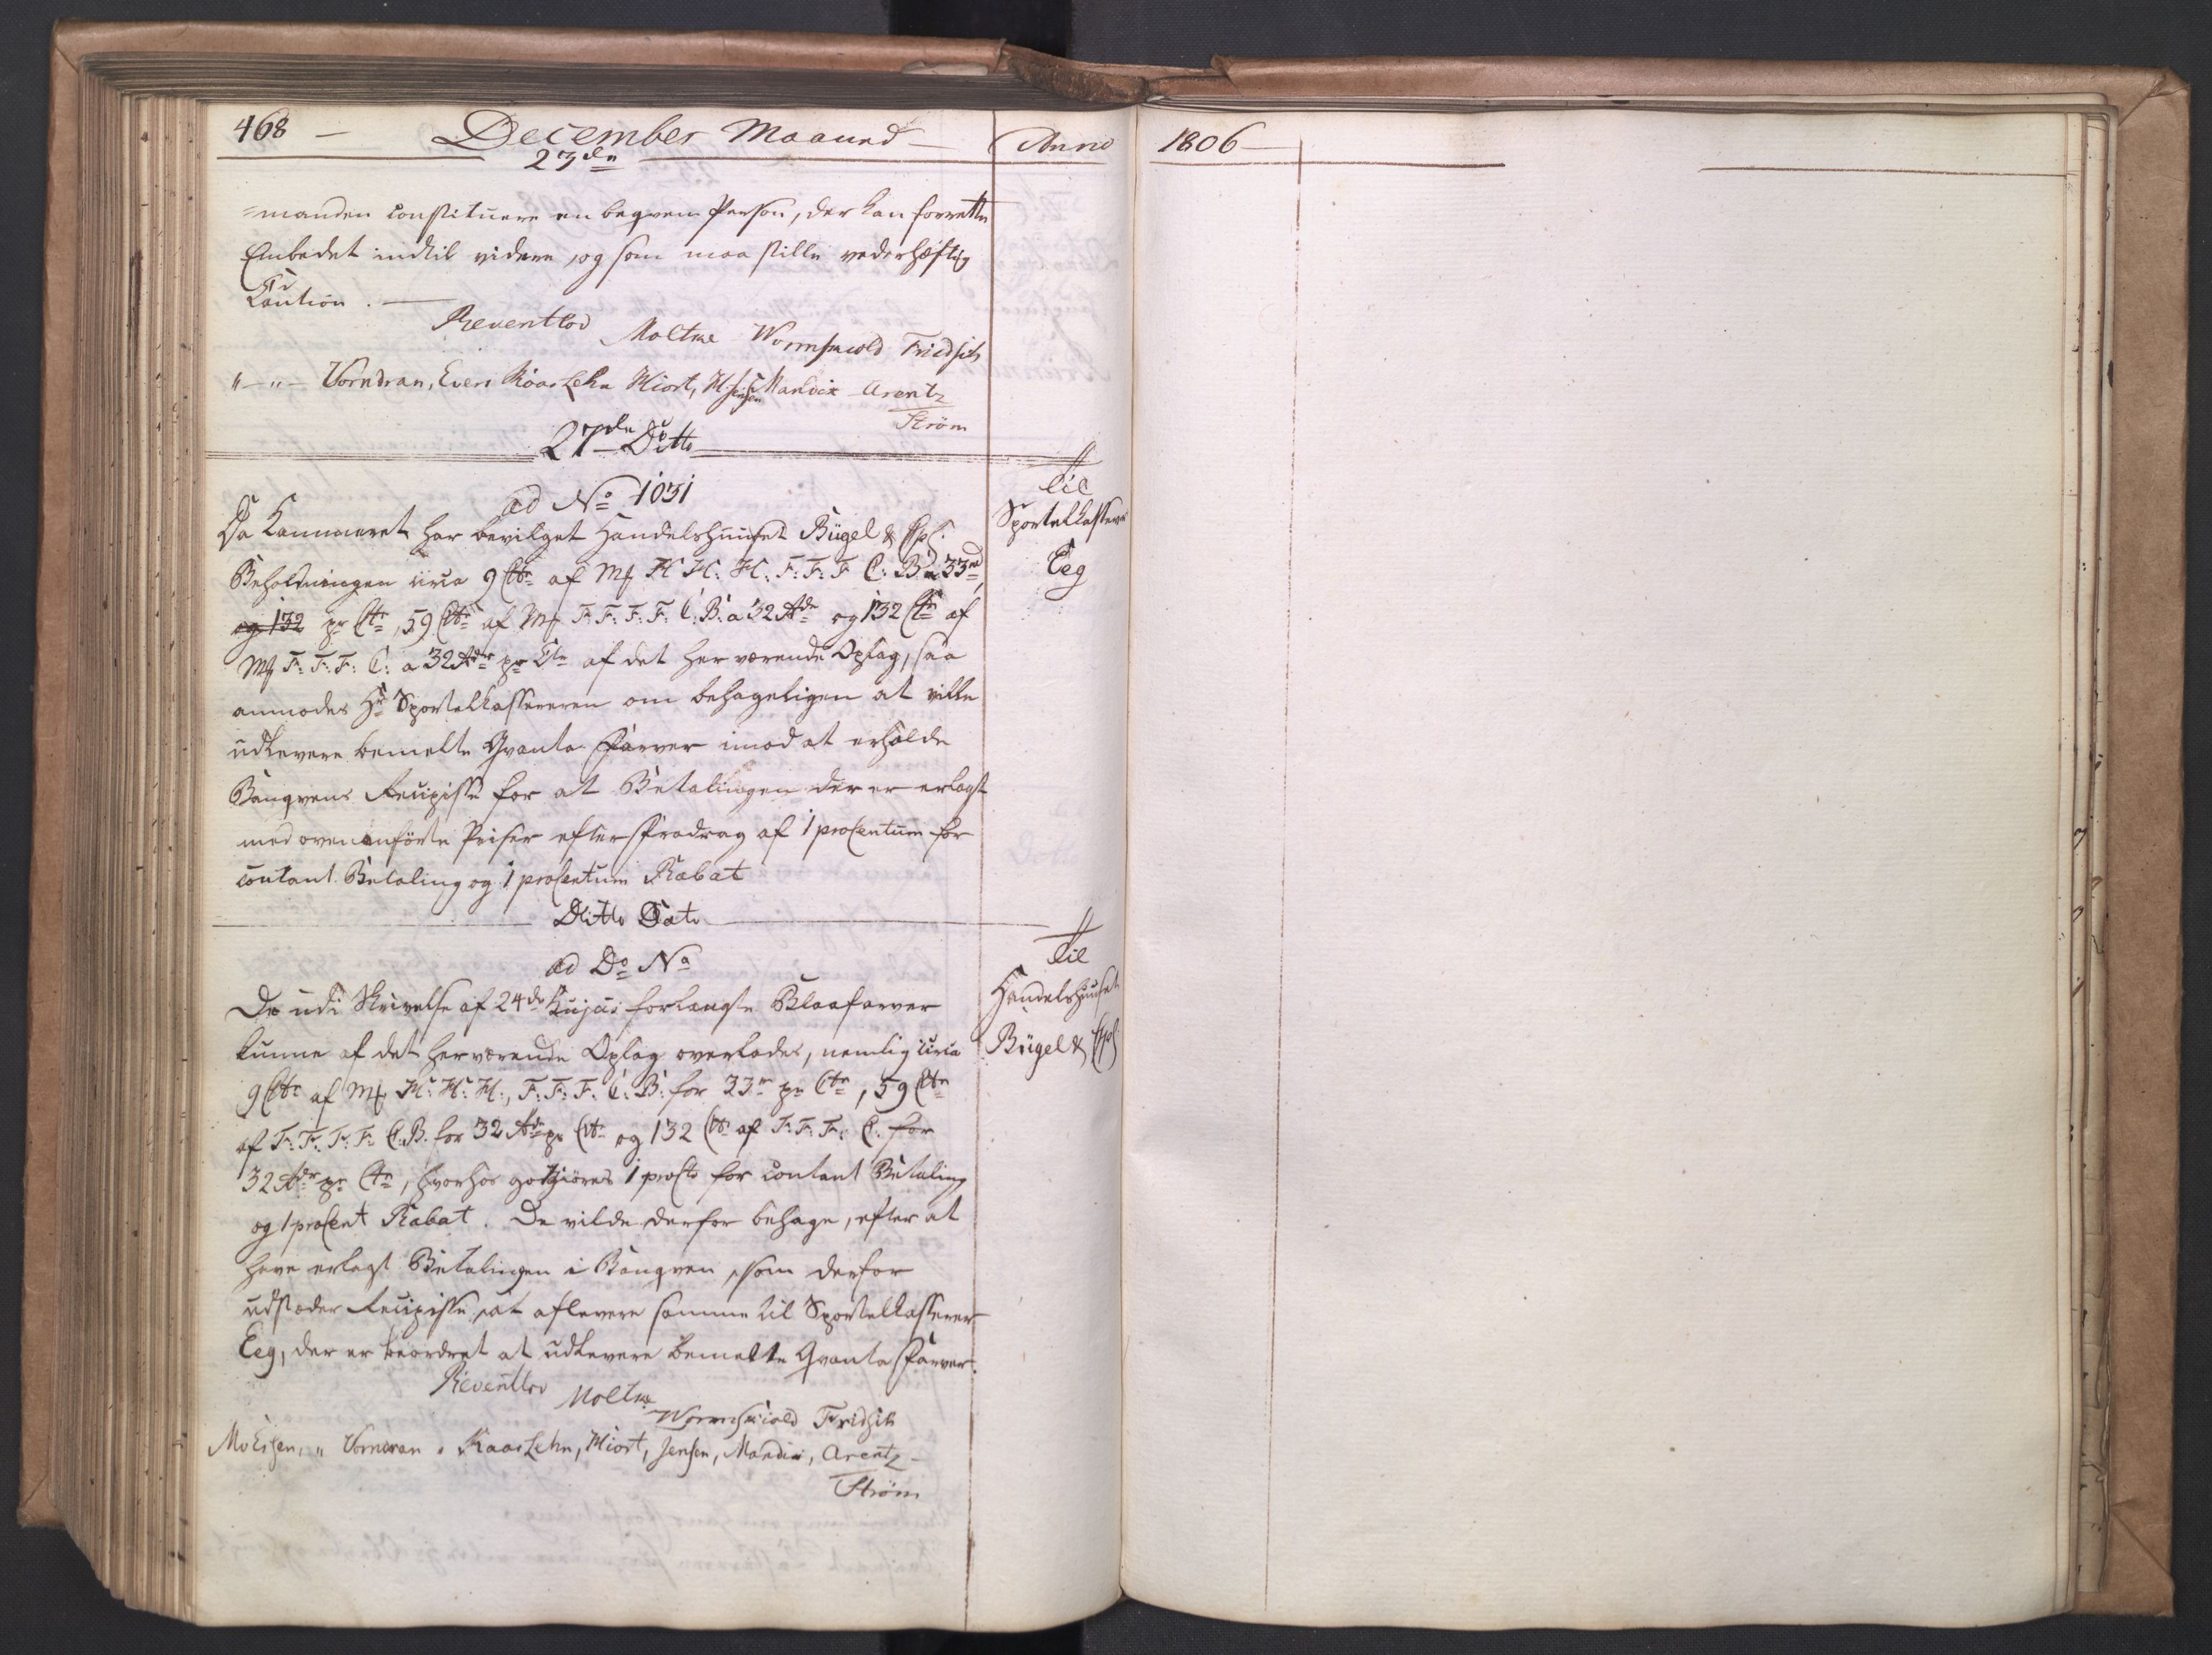 468 — December Maaned — Anno 1806 —
23de
=manden constituere en beqvem Person, der kan forrette
Embedet indtil videre, og som maa stille vederhæftig
Caution. —
Reventlov Moltke Wormskiold Fridsch
"—"— Vorndran, Evers Kaas Lehn Hiort, Jensen Mandix Arentz
Strøm
27de Ditto
ad No 1031
Til
Sportelkasserer
Eeg
Da Kammeret har bevilget Handelshuuset Bügel &
Beholdningen circa 9 Ctr af Mf H: H: H: F: F: F C: B: a 33
og 132 pr Ctr, 59 Ctr af Mf F: F: F: F: C: B: a 32 Rdr og 132 Ctr af
Mf F: F: F: C: a 32 Rdr pr Ctr af det her værende Oplag, saa
anmodes Hr Sportelkassereren om behageligen at ville
udlevere bemelte Qvanta Farver imod at erholde
Banqvens Recipisse for at Betalingen der er erlagt
med ovenanførte Priser efter Fradrag af 1 proCentum for
contant Betaling og 1 proCentum Rabat
Ditto Dato
ad Do No
Til
Handelshuuset
Bügel &
De udi Skrivelse af 24de hujus forlangte Blaafarver
kunne af det herværende Oplag overlades, nemlig circa
9 Ctr af Mf H: H: H:, F: F: F: C: B: for 33 pr Ctr, 59 Ctr
af F: F: F: F: C: B. for 32 Rdr pr Ctr og 132 Ctr af F: F: F: C: for
32 Rdr pr Ctr, hvorhos godtgiøres 1 proCto for contant Betaling
og 1 proCent Rabat. De vilde derfor behage, efter at
have erlagt Betalingen i Banqven, som derfor
udstæder Recipisse, at aflevere samme til Sportelkasserer
Eeg, der er beordret at udlevere bemelte Qvanta Farver.
Reventlov Moltke
Wormskiold Fridsch
" Vorndran " Kaas Lehn, Hiort, Jensen, Mandix, Arentz —
Strøm